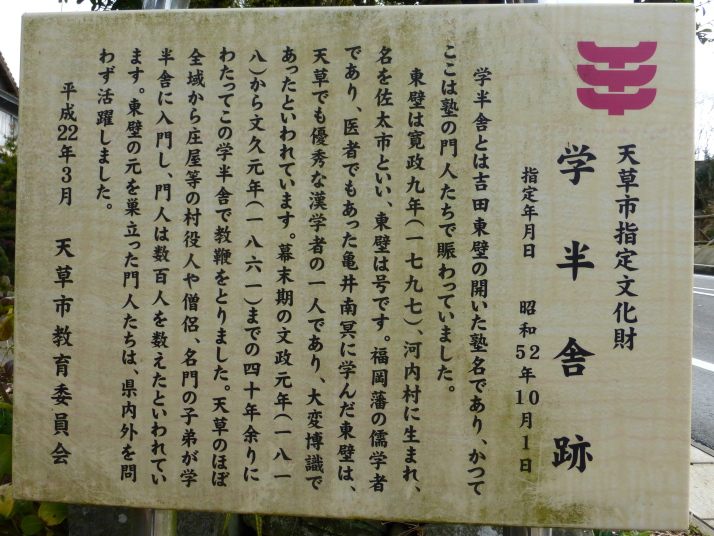 天草市指定文化財
学半舎跡
指定年月日 昭和52年10月1日
学半舎とは吉田東壁の開いた塾名であり、かつて
ここは塾の門人たちで賑わっていました。
東壁は寛政九年(一七九七)、河内村に生まれ、
名を佐太市といい、東壁は号です。福岡藩の儒学者
であり、医者でもあった亀井南冥に学んだ東壁は、
天草でも優秀な漢学者の一人であり、大変博識で
あったといわれています。幕末期の文政元年(一八一
八)から文久元年(一八六一)までの四十年余りに
わたってこの学半舎で教鞭をとりました。天草のほぼ
全域から庄屋等の村役人や僧侶、名門の子弟が学
半舎に入門し、門人は数百人を数えたといわれてい
ます。東壁の元を巣立った門人たちは、県内外を問
わず活躍しました。
平成22年3月 天草市教育委員会